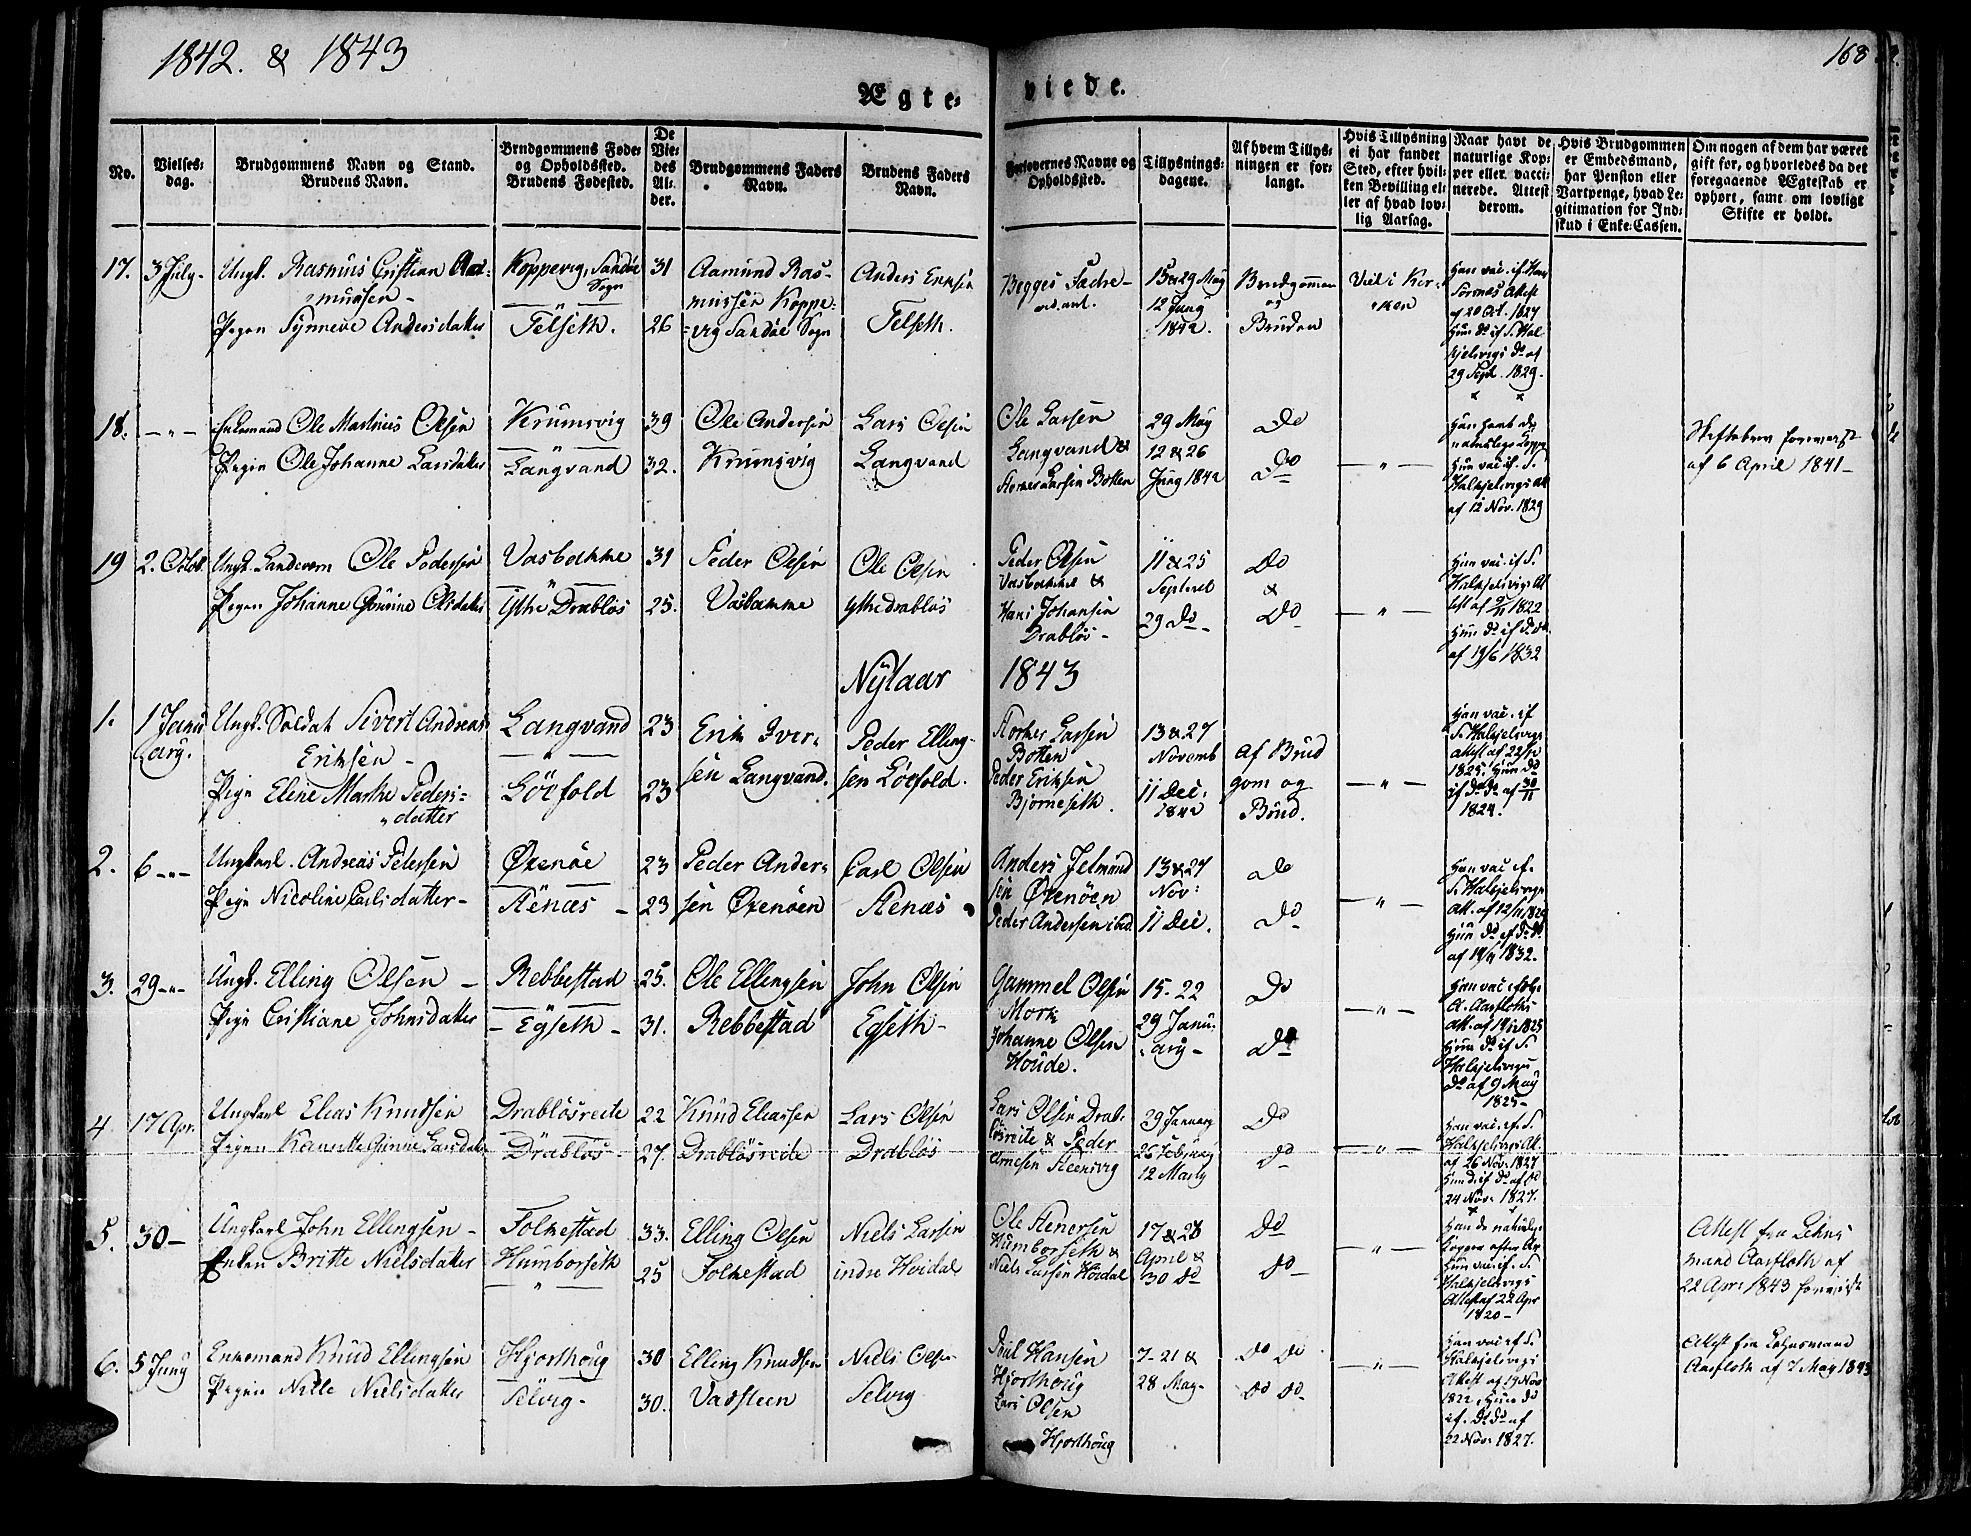 1842. & 1843
168
Ægte-
viede.
No.
Vielses-
dag.
Brudgommens Navn og Stand.
Brudens Navn.
Brudgommens Føde-
og Opholdssted.
Brudens Fødested.
De
Vie-
des
Al-
der.
Brudgommens Faders
Navn.
Brudens Faders
Navn.
Forlovernes Navne og
Opholdssted.
Tillysnings-
dagene.
Af hvem Tillys-
ningen er for-
langt.
Hvis Tillysning
ei har fundet
Sted, efter hvil-
ken Bevilling el-
ler af hvad lov-
lig Aarsag.
Naar havt de
naturlige Kop-
per eller vacci-
nerede. Attest
derom.
Hvis Brudgommen
er Embedsmand,
har Pension eller
Vartpenge, hvad Le-
gitimation for Ind-
skud i Enke-Cassen.
Om nogen af dem har været
gift før, og hvorledes da det
foregaaende Ægteskab er
ophørt, samt om lovligt
Skifte er holdt.
17.
3 July-
Ungk. Rasmus Cristian Aa-
munsen-
Pigen Synneve Andersdatter
Koppevig, Sandøe
Sogn
Telseth.
31
26
Aamund Ras-
mussen Koppe-
-vig Sandøe Sogn
Anders
Telseth.
Begges Fædre-
15 & 29 May
12 Juny
1842.
Brudgommen
og
Bruden
Viet i Kir-
ken
Han vac. if.
Attest
af 20 Oct. 1827
Hun do if S. Hal-
kjelsvigs do af
29 Sept. 1829.
18.
-"-
Enkemand Ole Martinus Olsen
Pigen Ole Johanne Larsdatter
Krumsvig
Langvand
39
32.
Ole Andersen
Krumsvig
Lars Olsen
Langvand
Ole Larsen
Langvand &
Larsen Botten
29 May
12 & 26
Juny 1842
Do
Do
-"-
Han havt de
naturlige Kopper
Hun vac. if. S.
Halkjelsvigs Att.
af 12 Nov. 1829
Skiftebrev foreviist
af 6 April 1841-
19
2. Octob.
Ungk. Landevern Ole Pedersen
Pigen Johanne Gurine Olsdatter
Vasbakke
Ytre Drabløs
31
25.
Peder Olsen
Vasbakke
Ole Olsen
Ytre Drabløs
Peder Olsen
Vasbakke &
Hans Johansen
Drabløs-
11 & 25
Septemb
29 Do-
Do
&
Do
-"-
Han vac. if. S.
Halkjelsvigs At-
test af 1822
Hun do if do do
af 19/6 1832
Nytaar
1843
1.
1 Janu
ary.
Ungk. Soldat Sivert Andreas
Eriksen-
Pign Elene Marthe Peders-
datter
Langvand
Löefold
23
23
Erik Iver-
sen Langvand.
Peder Elling-
sen Löefold.
Larsen
Botten
Peder Eriksen
Bjørneseth.
13 & 27
Novemb
11 Dec.
1842
Af Brud
gom og
Brud.
-"-
Han vac. if
S. Halkjelsvigs
Attest af
1825. Hun do
if do do af 30/11
1824.
2.
6-"-
Ungkarl. Andreas Pedersen
Pign Nicoline Carlsdatter-
Øxenøe
Aenæs-
23
23
Peder Ander-
sen Øxenøen
Carl Olsen
Aenæs
Anders
sen Øxenøen
Peder Andersen ibid.
13 & 27
Nov:
11 Dec.
do
Do
-"-
Han vac. if.
S. Halkjelsvigs
Att. af 12/11 1829
Hun do if do do
af 1832.
3.
29-"-
Ungk. Elling Olsen-
Pign Cristiane Johnsdatter
Rebbestad
-Egseth-
25.
31.
Ole Ellingsen
Rebbestad
John Olsen
Egseth-
Gammel Olsen
Mork
Johanne Olsen
Houde.
15-22
29 Janu-
ary-
Do
Do
-"-
Han vac.
A. Aarflots
att. af 1825
Hun do if S.
Halkjelsvigs
do af 9 May
1825-
4.
17 Apr.
Ungkarl Elias Knudsen
Pigen Gurine Larsdatter
Drabløsreite
Drabløs-
22
27.
Knud Eliassen
Drabløsreite
Lars Olsen
Drabløs
Lars Olsen Drab-
løsreite & Peder
Arnesen Steensvig
29 January
26 Febuary
12 Marty
Do
Do
-"-
Han vac. if. S.
Halkjelsvigs Att.
af 26 Nov. 1827
Hun do if do af do
24 Nov. 1827.
5.
30-
Ungkarl John Ellingsen-
Enken Britte Nielsdatter
Folkestad
Humborseth
33.
25
Elling Olsen
Folkestad
Niels Larsen
indre Høidal
Ole Stenersen
Humborseth &
Niels Larsen Høidal
17 & 23
April &
30 Do
Do
Do-
-"-
Han de naturlige
Kopper efter Ar
Hun vac. if. S.
Halkjelsvigs
Attest af 22 Apr
1820-
Attest fra Lehns
mand Aarfloth af
22 Apr. 1843 foreviist
6.
5 Juny
Enkemand Knud Ellingsen
Pigen Nille Nielsdatter
Hjorthoug
Selvig-
30
30.
Elling Knudsen
Vadsteen
Niels Olsen
Selvig
Poul Hansen
Hjorthoug
Lars Olsen
Hjorthoug
7-21 &
28 May-
Do Do
Do Do.
-"-
Han vac. if S.
Halkjelsvigs
Attest af 19 Nov
1822, Hun do
if. do do af
22 Nov. 1827.
Attest fra Lehnsmand
Aarfloth af 7. May 1843